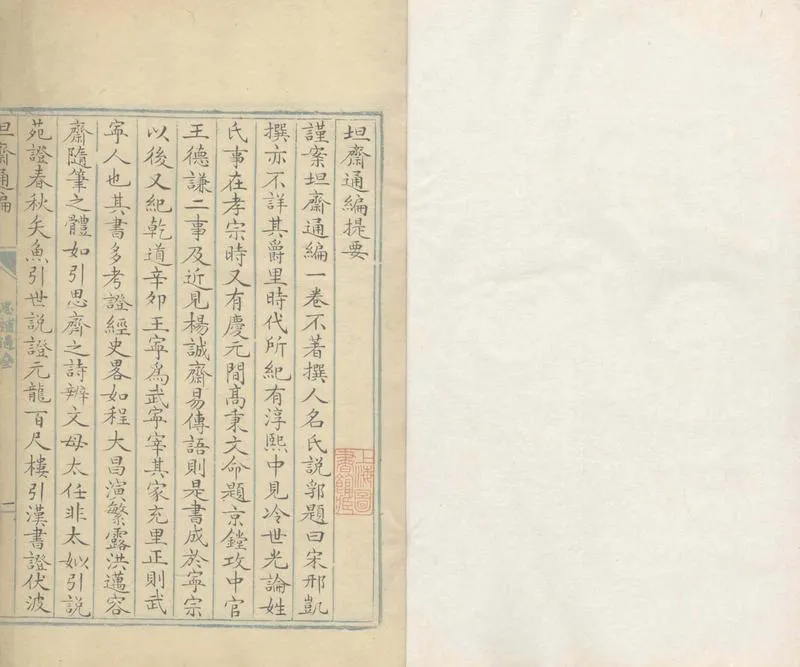 坦齋通編提要
謹案坦齋通編一卷不著撰人名氏說郛題曰宋邢凱
撰亦不詳其爵里時代所紀有淳熙中見冷世光論姓
氏事在孝宗時又有慶元間高秉文命題京鏜攻中官
王德謙二事及近見楊誠齋易傳語則是書成於寧宗
以後又紀乾道辛卯王寧為武寧宰其家充里正則武
寧人也其書多考證經史畧如程大昌演繁露洪邁容
齋隨筆之體如引思齊之詩辨文母太任非太姒引說
苑證春秋矢魚引世說證元龍百尺樓引漢書證伏波
坦齋通編
一
上海圖
書館藏